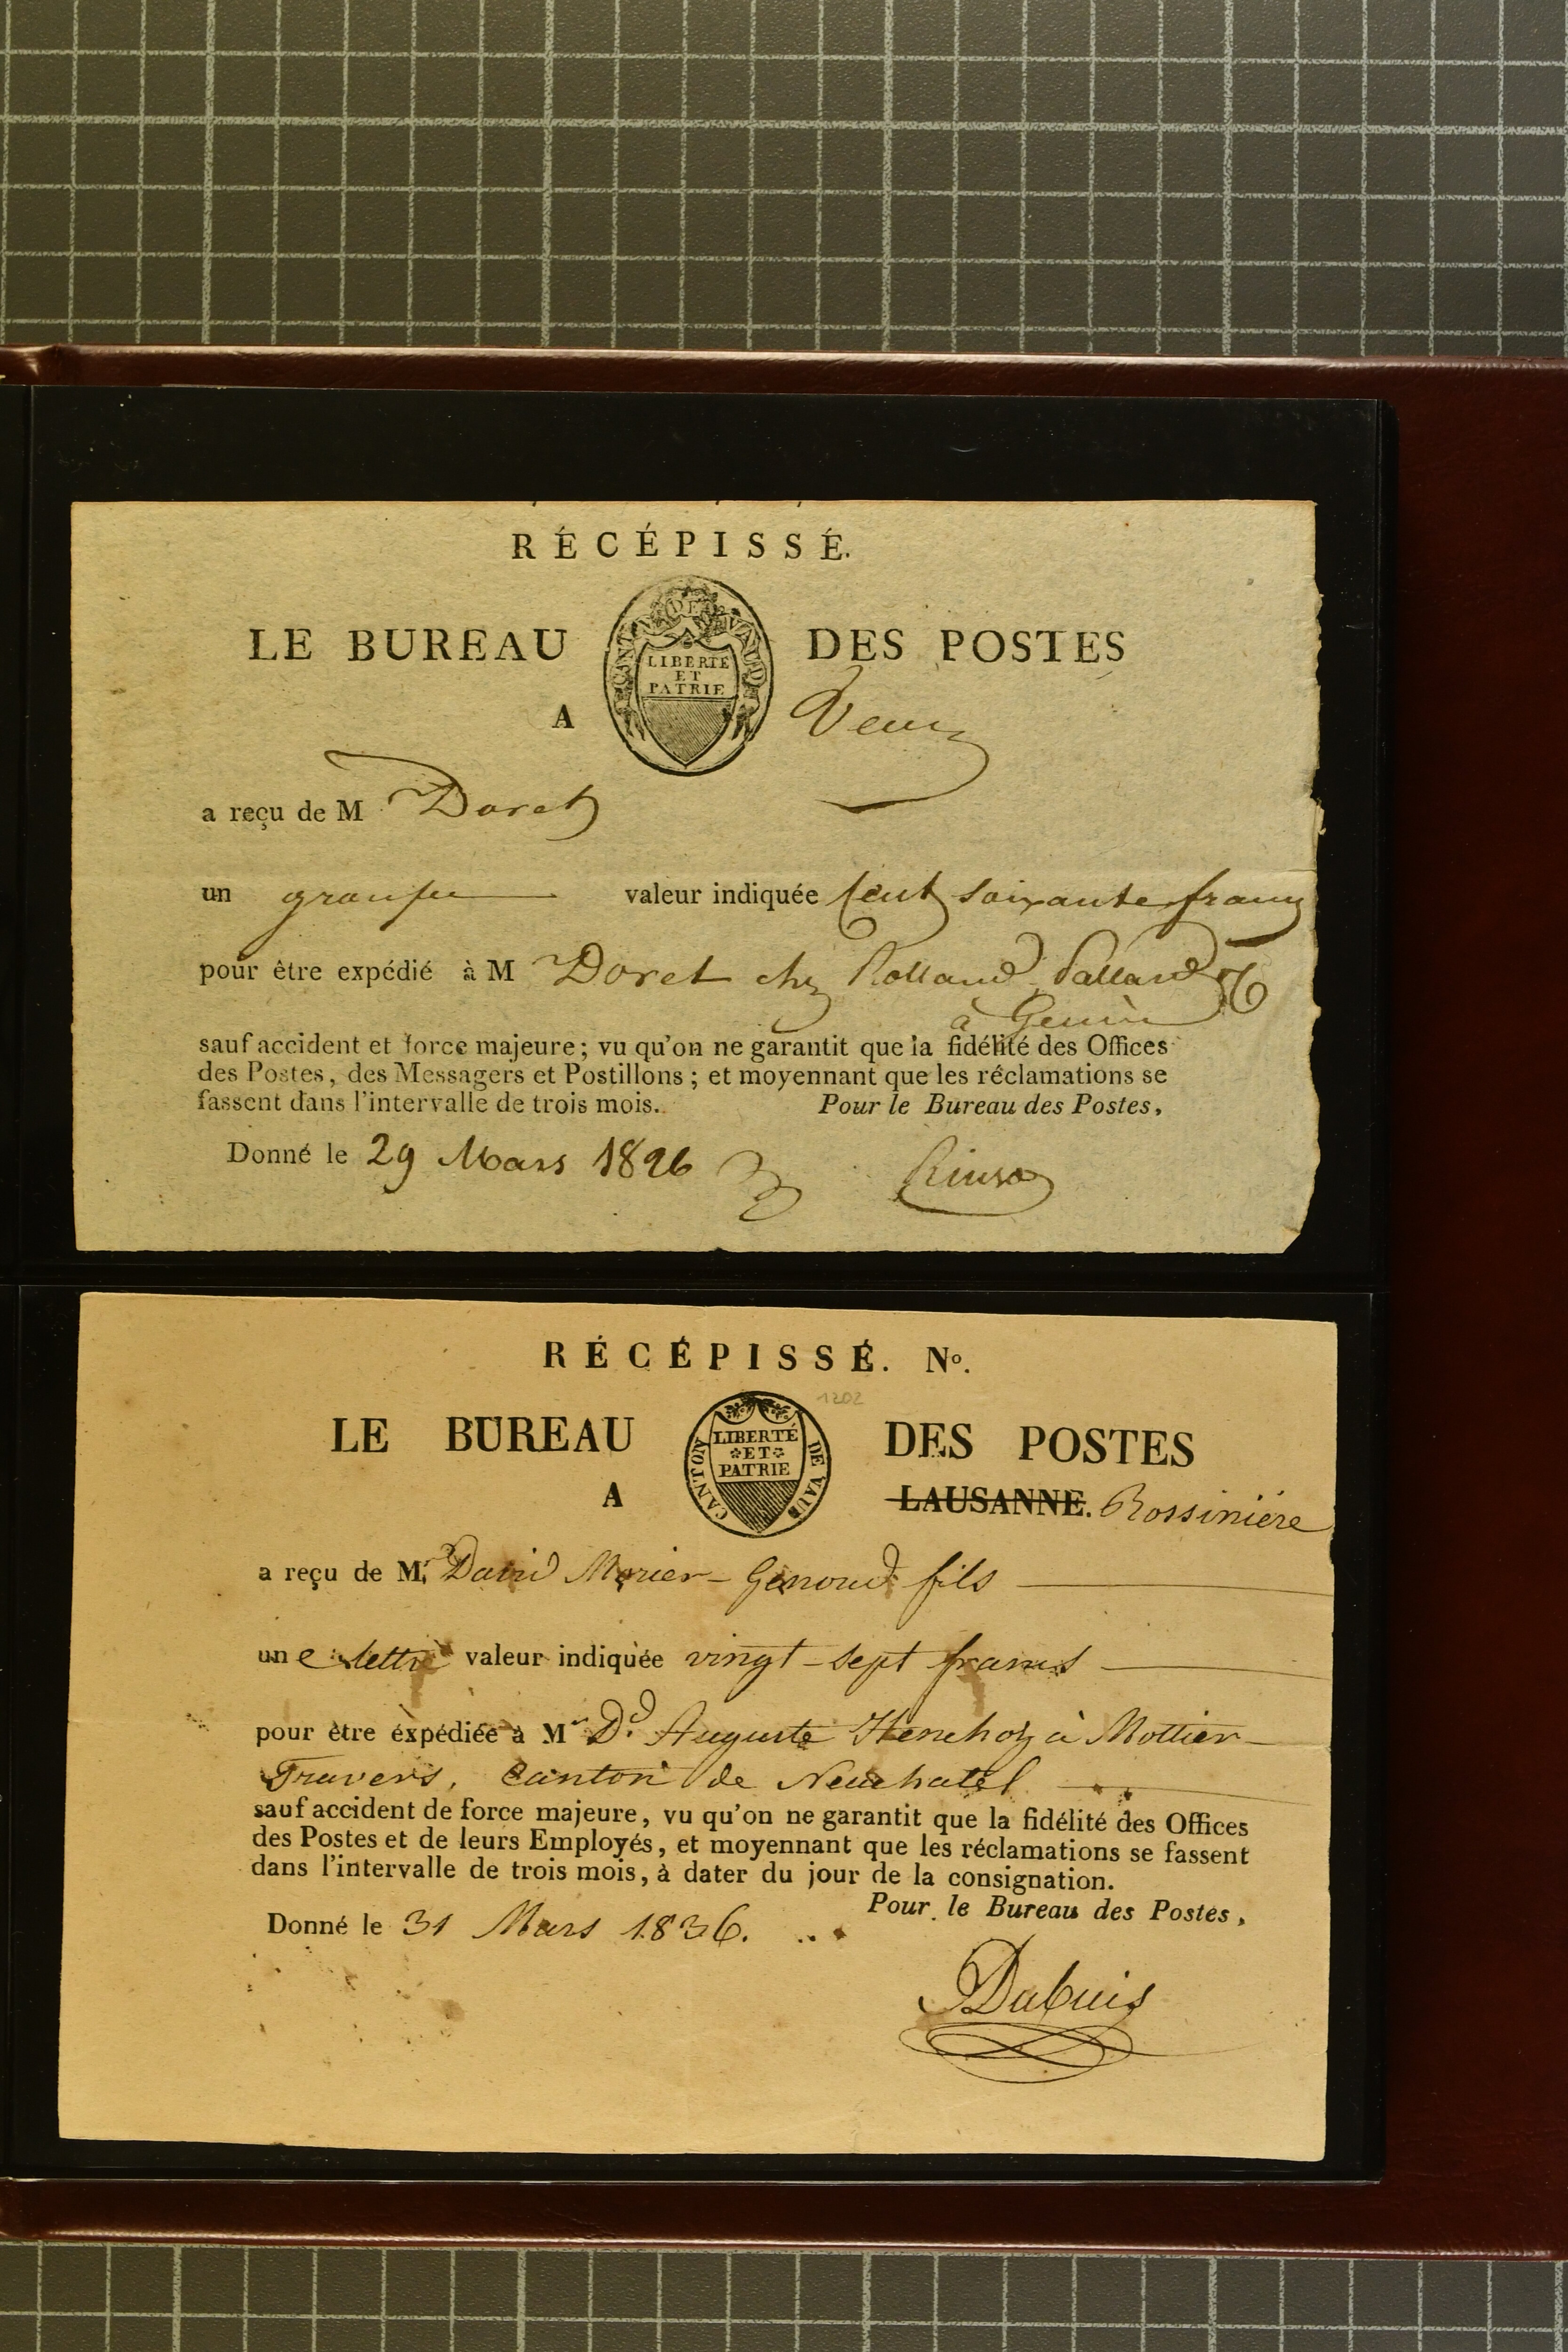 RÉCÉPISSÉ.
LE BUREAU DES POSTES
CANTON DE VAUD
LIBERTÉ
ET
PATRIE
A
a reçu de M Doret
un valeur indiquée Cent soixante francs
pour être expédié à M Doret chez Rolland
à
sauf accident et force majeure; vu qu'on ne garantit que la fidélité des Offices
des Postes, des Messagers et Postillons; et moyennant que les réclamations se
fassent dans l'intervalle de trois mois. Pour le Bureau des Postes,
Donné le 29 Mars 1826
RÉCÉPISSÉ. No.
1202
LE BUREAU DES POSTES
CANTON DE VAUD
LIBERTÉ
ET
PATRIE
A LAUSANNE. Rossinière
a reçu de Mr. David Morier-Genoud fils
une lettre valeur indiquée vingt-sept francs
pour être expédiée à Mr Dd. Auguste Henchoz à Mottier-
Travers, Canton de Neuchatel
sauf accident de force majeure, vu qu'on ne garantit que la fidélité des Offices
des Postes et de leurs Employés, et moyennant que les réclamations se fassent
dans l'intervalle de trois mois, à dater du jour de la consignation.
Pour le Bureau des Postes,
Donné le 31 Mars 1836.
Dubuis